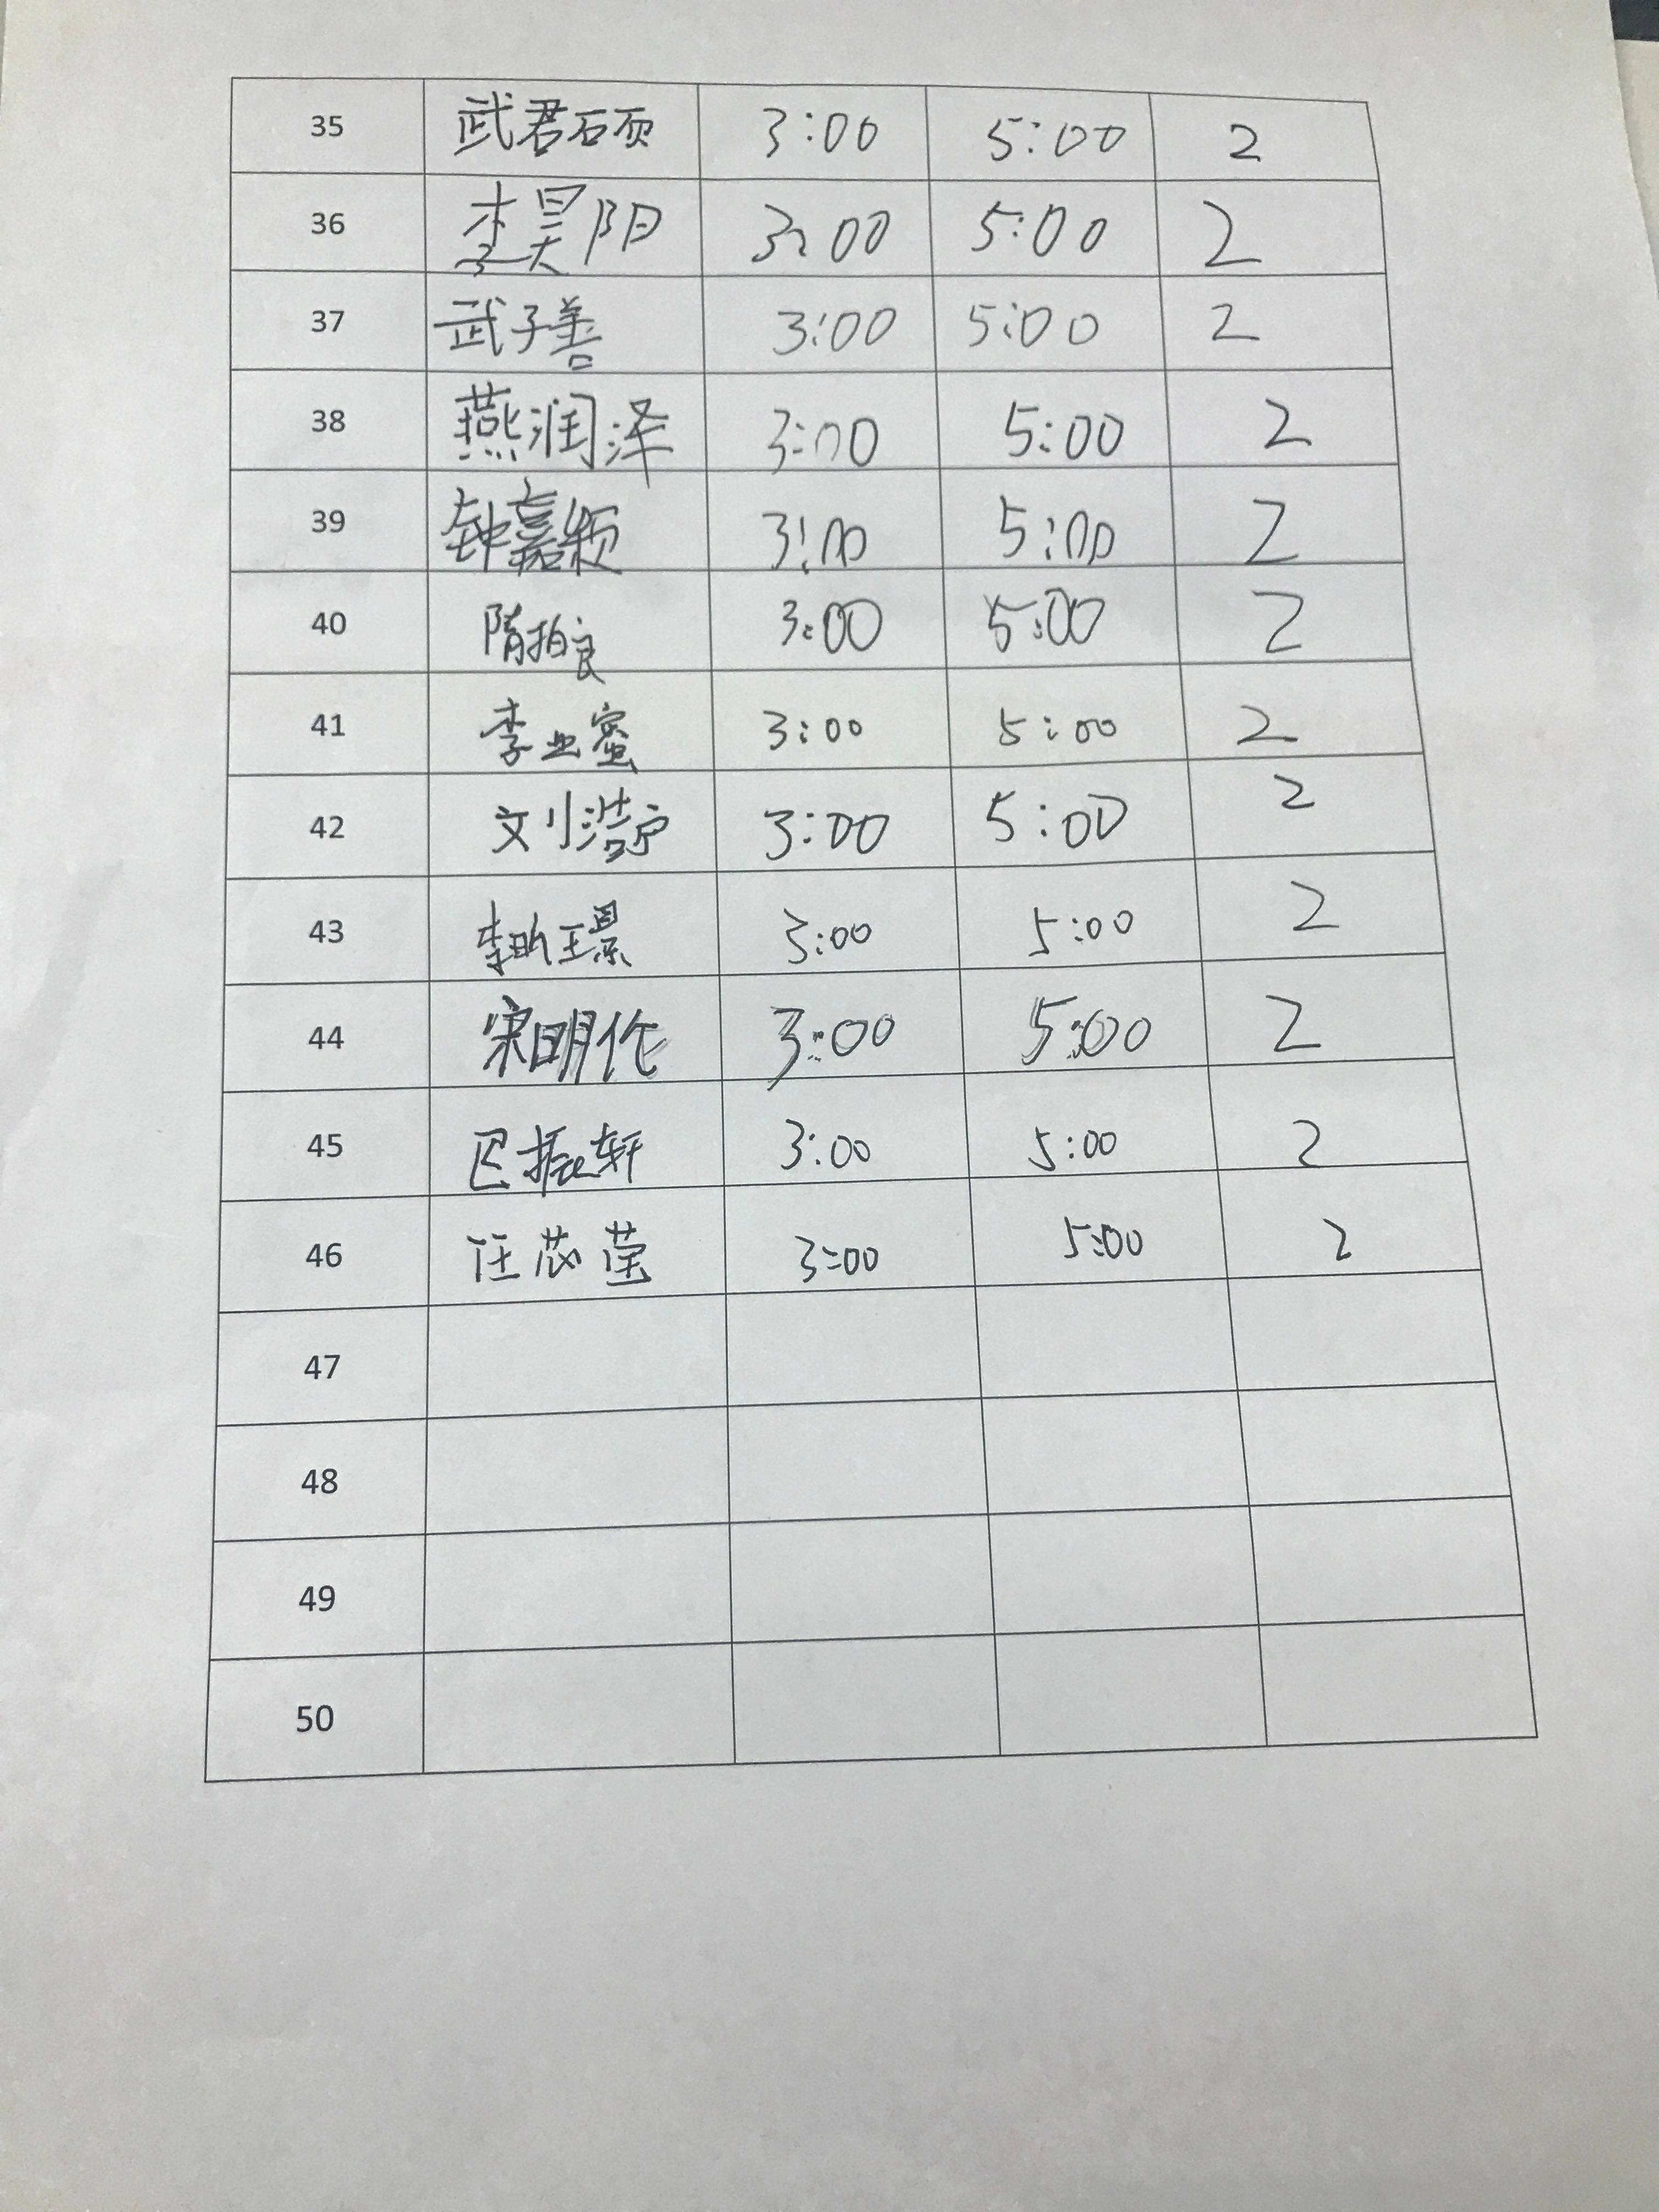 35 武君硕 3:00 5:00 2
36 李昊阳 3:00 5:00 2
37 武子善 3:00 5:00 2
38 燕润泽 3:00 5:00 2
39 钟嘉颖 3:00 5:00 2
40 隋柏良 3:00 5:00 2
41 李业蜜 3:00 5:00 2
42 刘浩宁 3:00 5:00 2
43 李昕璟 3:00 5:00 2
44 宋明作 3:00 5:00 2
45 巴振轩 3:00 5:00 2
46 任芯莹 3:00 5:00 2
47
48
49
50